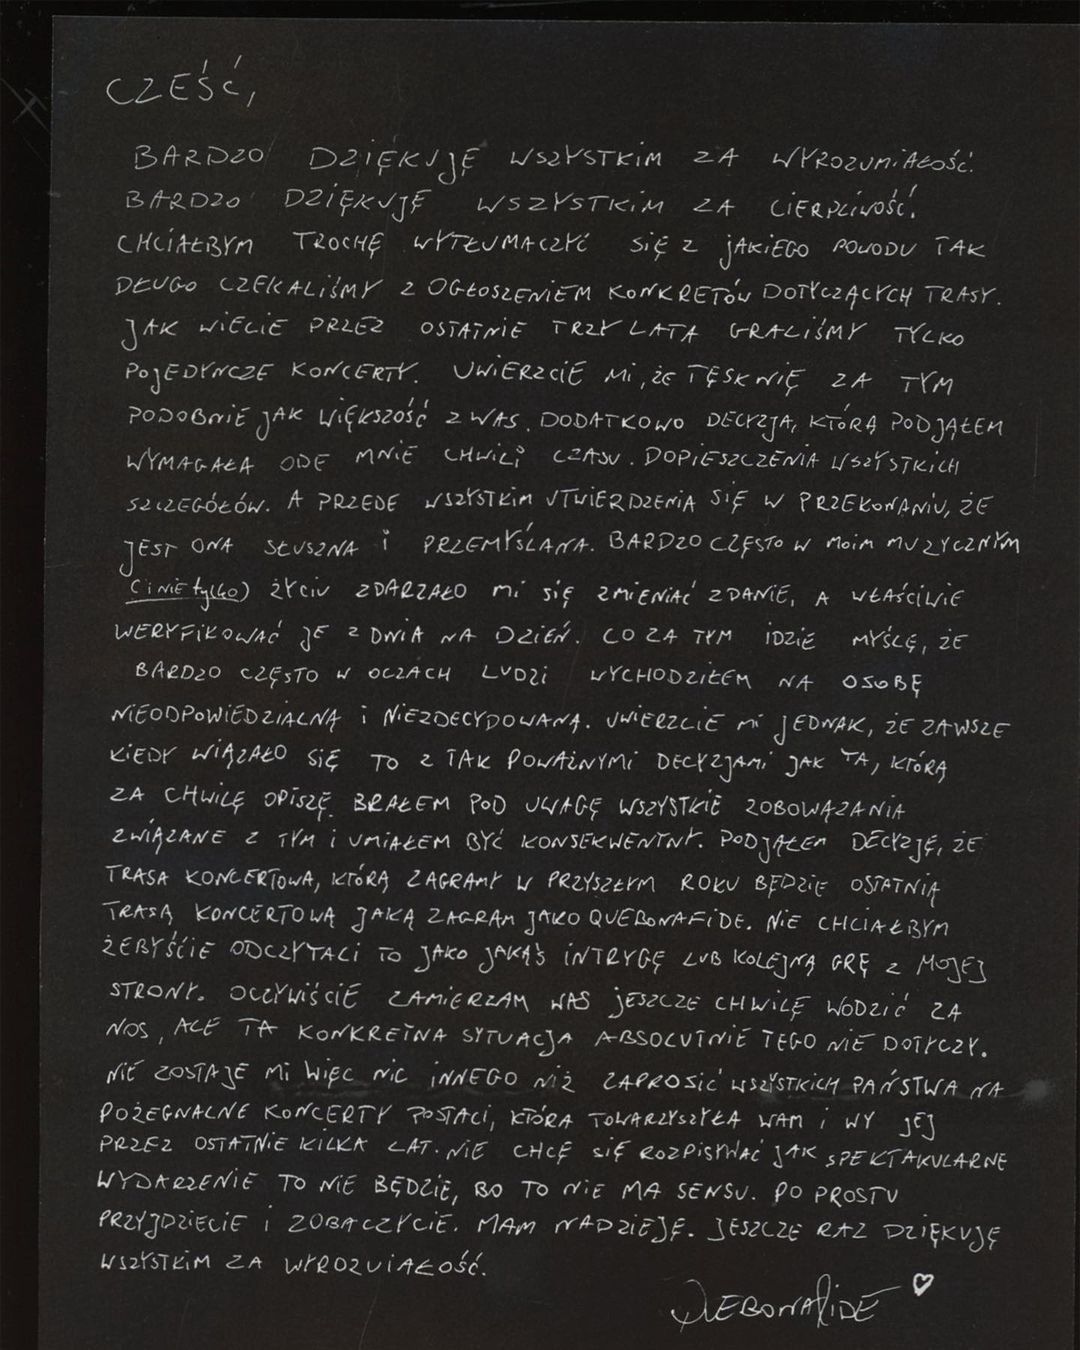 CZEŚĆ,
BARDZO DZIĘKUJĘ WSZYSTKIM ZA WYROZUMIAŁOŚĆ.
BARDZO DZIĘKUJĘ WSZYSTKIM ZA CIERPLIWOŚĆ.
CHCIAŁBYM TROCHĘ WYTŁUMACZYĆ SIĘ Z JAKIEGO POWODU TAK
DŁUGO CZEKALIŚMY Z OGŁOSZENIEM KONKRETÓW DOTYCZĄCYCH TRASY.
JAK WIECIE PRZEZ OSTATNIE TRZY LATA GRALIŚMY TYLKO
POJEDYNCZE KONCERTY. UWIERZCIE MI, ŻE TĘSKNIĘ ZA TYM
PODOBNIE JAK WIĘKSZOŚĆ Z WAS. DODATKOWO DECYZJA, KTÓRĄ PODJĄŁEM
WYMAGAŁA ODE MNIE CHWILI CZASU. DOPIESZCZENIA WSZYSTKICH
SZCZEGÓŁÓW. A PRZEDE WSZYSTKIM UTWIERDZENIA SIĘ W PRZEKONANIU, ŻE
JEST ONA SŁUSZNA I PRZEMYŚLANA. BARDZO CZĘSTO W MOIM MUZYCZNYM
(I NIE tylko) ŻYCIU ZDARZAŁO MI SIĘ ZMIENIAĆ ZDANIE, A WŁAŚCIWIE
WERYFIKOWAĆ JE Z DNIA NA DZIEŃ. CO ZA TYM IDZIE MYŚLĘ, ŻE
BARDZO CZĘSTO W OCZACH LUDZI WYCHODZIŁEM NA OSOBĘ
NIEODPOWIEDZIALNĄ I NIEZDECYDOWANĄ. UWIERZCIE MI JEDNAK, ŻE ZAWSZE
KIEDY WIĄZAŁO SIĘ TO Z TAK POWAŻNYMI DECYZJAMI JAK TA, KTÓRĄ
ZA CHWILĘ OPISZĘ. BRAŁEM POD UWAGĘ WSZYSTKIE ZOBOWĄZANIA
ZWIĄZANE Z TYM I UMIAŁEM BYĆ KONSEKWENTNY. PODJĄŁEM DECYZJĘ, ŻE
TRASA KONCERTOWA, KTÓRĄ ZAGRAMY W PRZYSZŁYM ROKU BĘDZIE OSTATNIĄ
TRASĄ KONCERTOWĄ JAKĄ ZAGRAM JAKO QUEBONAFIDE. NIE CHCIAŁBYM
ŻEBYŚCIE ODCZYTALI TO JAKO JAKĄŚ INTRYGĘ LUB KOLEJNĄ GRĘ Z MOJEJ
STRONY. OCZYWIŚCIE ZAMIERZAM WAS JESZCZE CHWILĘ WODZIĆ ZA
NOS, ALE TA KONKRETNA SYTUACJA ABSOLUTNIE TEGO NIE DOTYCZY.
NIE ZOSTAJE MI WIĘC NIC INNEGO NIŻ ZAPROSIĆ WSZYSTKICH PAŃSTWA NA
POŻEGNALNE KONCERTY POSTACI, KTÓRA TOWARZYSZYŁA WAM I WY JEJ
PRZEZ OSTATNIE KILKA LAT. NIE CHCĘ SIĘ ROZPISYWAĆ JAK SPEKTAKULARNE
WYDARZENIE TO NIE BĘDZIE, BO TO NIE MA SENSU. PO PROSTU
PRZYJDZIECIE I ZOBACZYCIE. MAM NADZIEJĘ. JESZCZE RAZ DZIĘKUJĘ
WSZYSTKIM ZA WYROZUIAŁOŚĆ.
QUEBONAFIDE